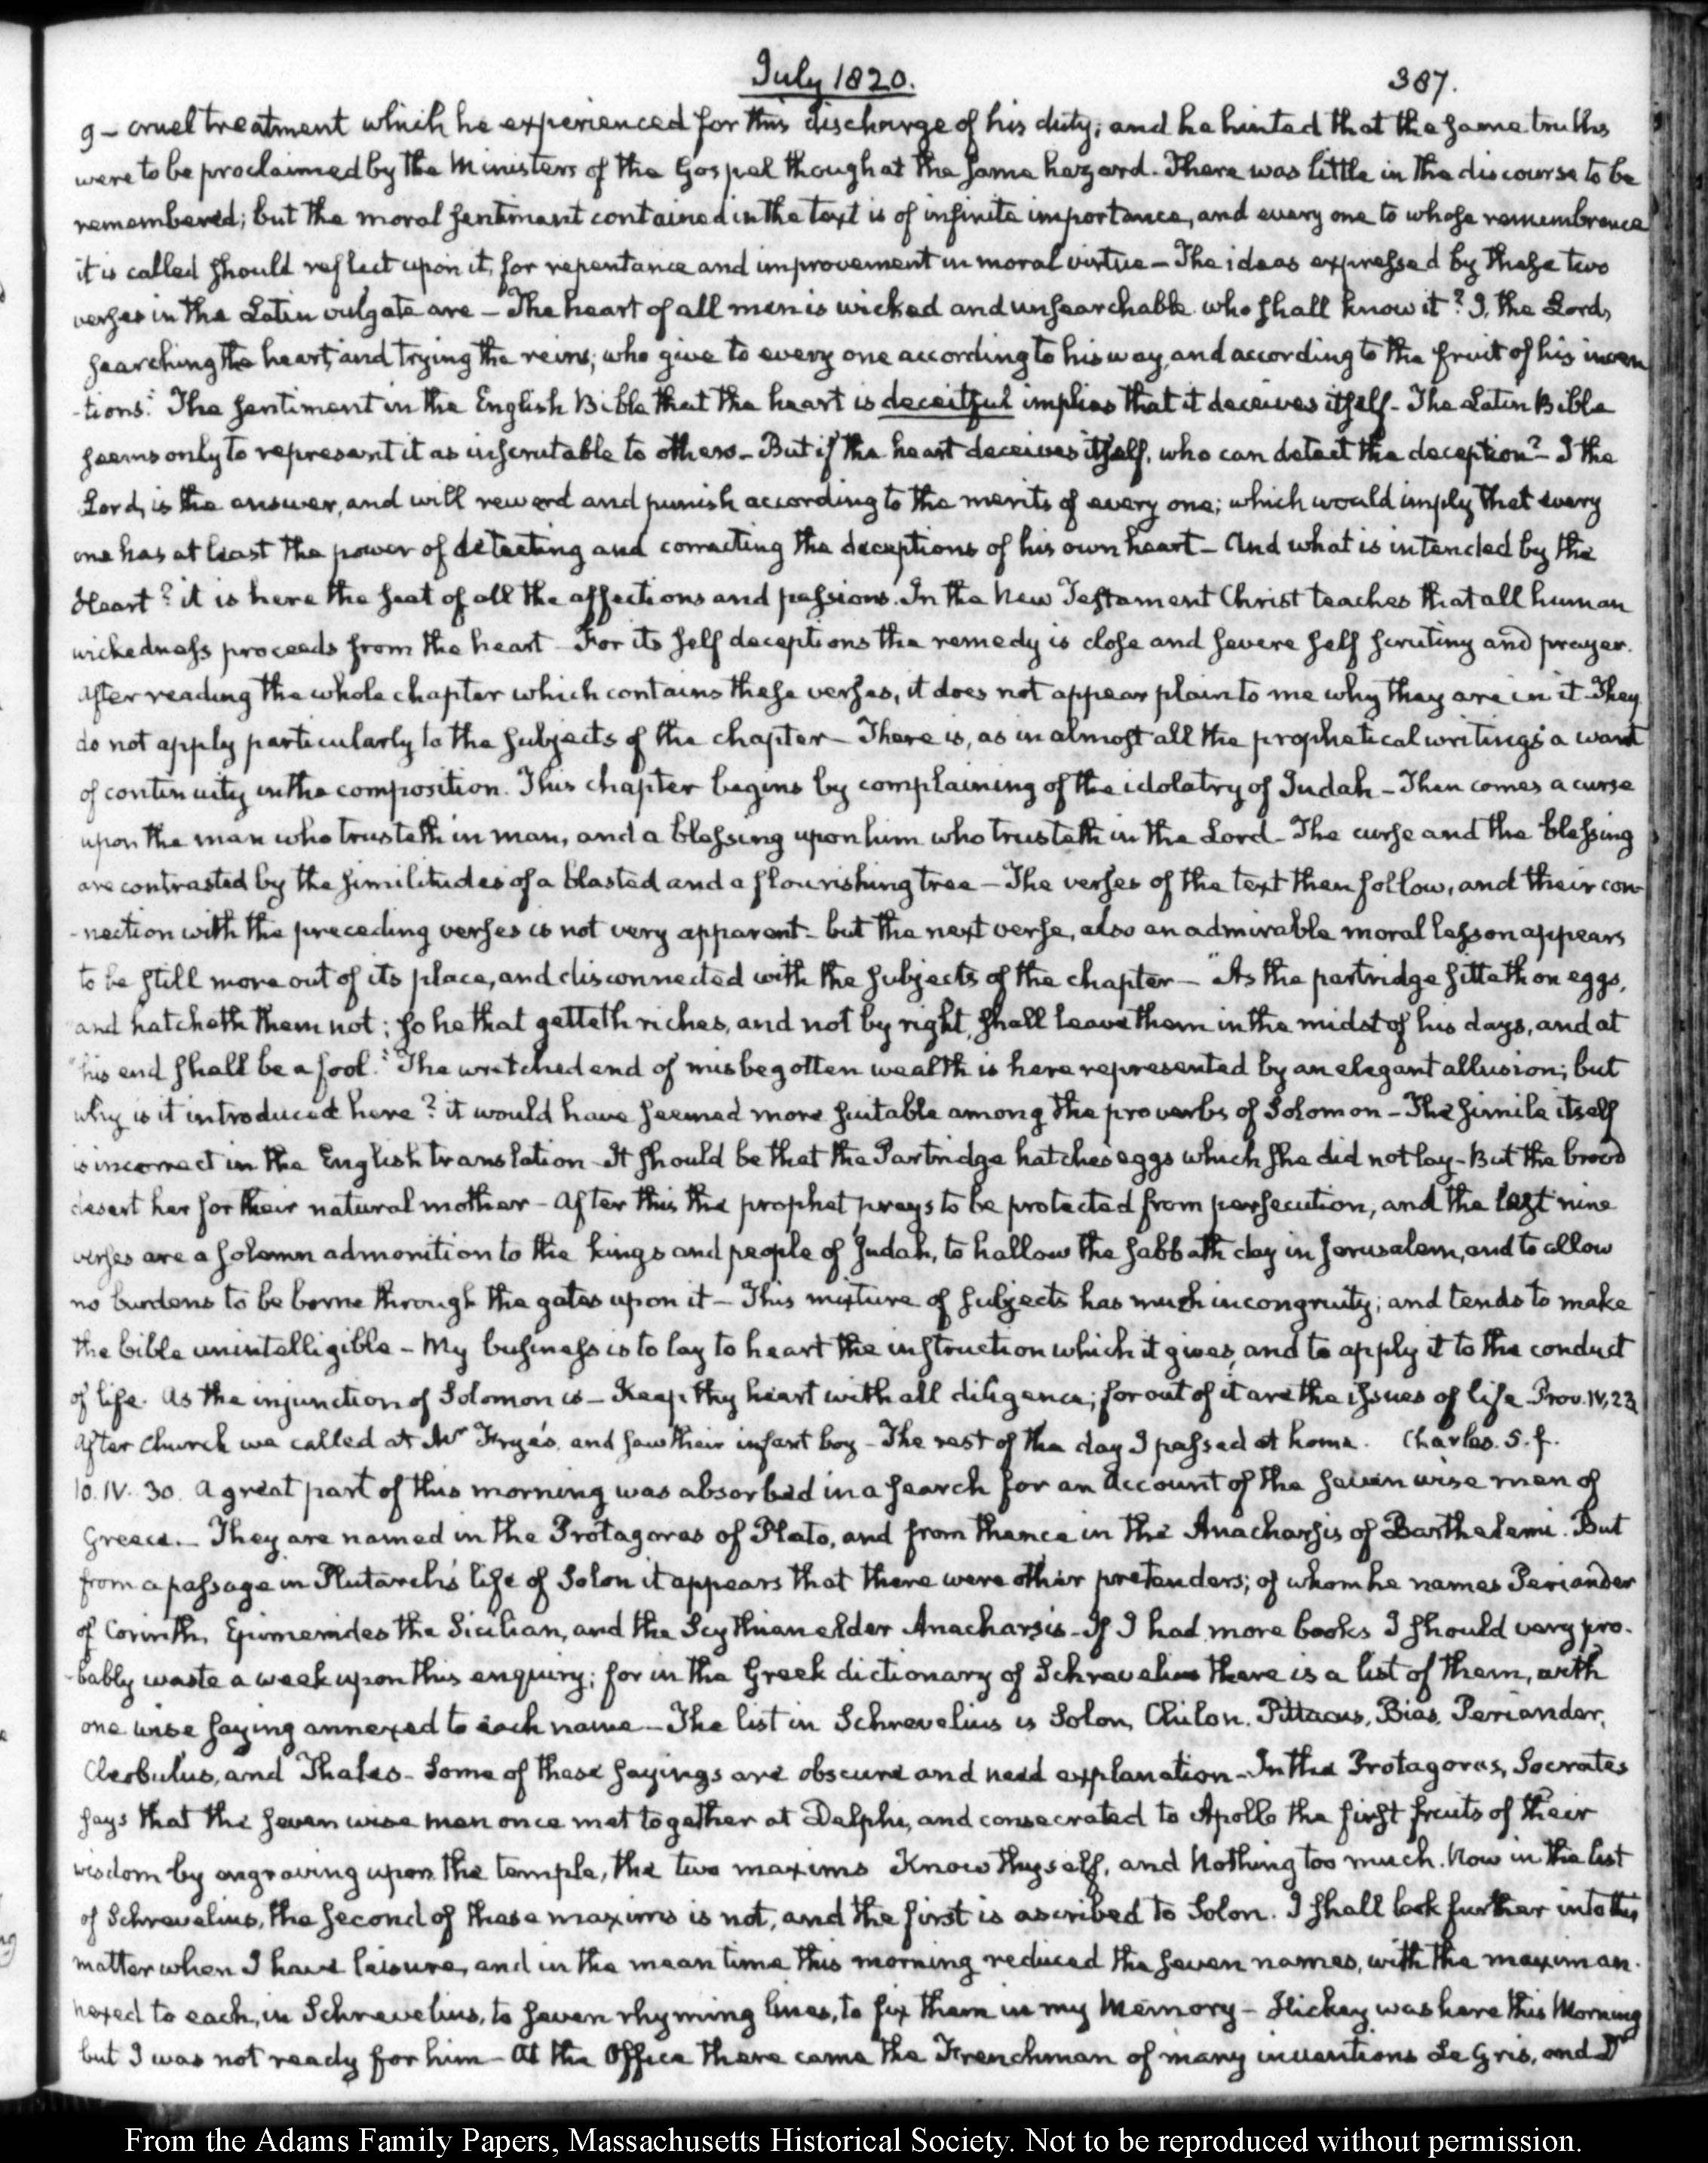 July 1820.
387.
9 — cruel treatment which he experienced for this discharge of his duty; and he hinted that the same truths
were to be proclaimed by the Ministers of the Gospel though at the same hazard. There was little in the discourse to be
remembered; but the moral sentiment contained in the text is of infinite importance, and every one to whose remembrance
it is called should reflect upon it, for repentance and improvement in moral virtue — The ideas expressed by these two
verses in the Latin vulgate are — The heart of all men is wicked and unsearchable who shall know it? I, the Lord,
searching the heart, and trying the reins; who give to every one according to his way, and according to the fruit of his inven
-tions." The sentiment in the English Bible that the heart is deceitful implies that it deceives itself — The Latin Bible
seems only to represent it as inscrutable to others — But if the heart deceives itself, who can detect the deception? — I the
Lord, is the answer, and will reward and punish according to the merits of every one; which would imply that every
one has at least the power of detecting and correcting the deceptions of his own heart — And what is intended by the
Heart? it is here the seat of all the affections and passions. In the New Testament Christ teaches that all human
wickedness proceeds from the heart — For its self deceptions the remedy is close and severe self scrutiny and prayer.
After reading the whole chapter which contains these verses, it does not appear plain to me why they are in it — They
do not apply particularly to the subjects of the chapter — There is, as in almost all the prophetical writings a want
of continuity in the composition. This chapter begins by complaining of the idolatry of Judah — Then comes a curse
upon the man who trusteth in man, and a blessing upon him who trusteth in the Lord — The curse and the blessing
are contrasted by the similitudes of a blasted and a flourishing tree — The verses of the text then follow, and their con-
-nection with the preceding verses is not very apparent — but the next verse, also an admirable moral lesson appears
to be still more out of its place, and disconnected with the subjects of the chapter — "As the partridge sitteth on eggs,
"and hatcheth them not; so he that getteth riches, and not by right, shall leave them in the midst of his days, and at
"his end shall be a fool." The wretched end of misbegotten wealth is here represented by an elegant allusion; but
why is it introduced here? it would have seemed more suitable among the proverbs of Solomon — The simile itself
is incorrect in the English translation — It should be that the Partridge hatches eggs which she did not lay — But the brood
desert her for their natural mother — After this the prophet prays to be protected from persecution, and the last nine
verses are a solemn admonition to the kings and people of Judah, to hallow the Sabbath day in Jerusalem, and to allow
no burdens to be borne through the gates upon it — This mixture of subjects has much incongruity; and tends to make
the bible unintelligible — My business is to lay to heart the instruction which it gives, and to apply it to the conduct
of life. As the injunction of Solomon is — Keep thy heart with all diligence; for out of it are the issues of life. Prov. IV, 23.
After Church we called at Mr Frye's, and saw their infant boy — The rest of the day I passed at home. Charles. S. f.
10. IV. 30. A great part of this morning was absorbed in a search for an account of the seven wise men of
Greece. — They are named in the Protagoras of Plato, and from thence in the Anacharsis of Barthelemi. But
from a passage in Plutarch's life of Solon it appears that there were other pretenders; of whom he names Periander
of Corinth, Epimenides the Sicilian, and the Scythian elder Anacharsis — If I had more books I should very pro-
-bably waste a week upon this enquiry; for in the Greek dictionary of Schrevelius there is a list of them, with
one wise saying annexed to each name — The list in Schrevelius is Solon, Chilon, Pittacus, Bias, Periander,
Cleobulus, and Thales — Some of these sayings are obscure and need explanation — In the Protagoras, Socrates
says that the seven wise men once met together at Delphi, and consecrated to Apollo the first fruits of their
wisdom by engraving upon the temple, the two maxims Know thyself, and Nothing too much. Now in the list
of Schrevelius, the second of these maxims is not, and the first is ascribed to Solon. I shall look further into this
matter when I have leisure, and in the mean time this morning reduced the seven names, with the maxim an-
nexed to each, in Schrevelius, to seven rhyming lines, to fix them in my Memory — Hickey was here this Morning
but I was not ready for him — At the Office there came the Frenchman of many inventions Le Gris, and Dr
From the Adams Family Papers, Massachusetts Historical Society. Not to be reproduced without permission.